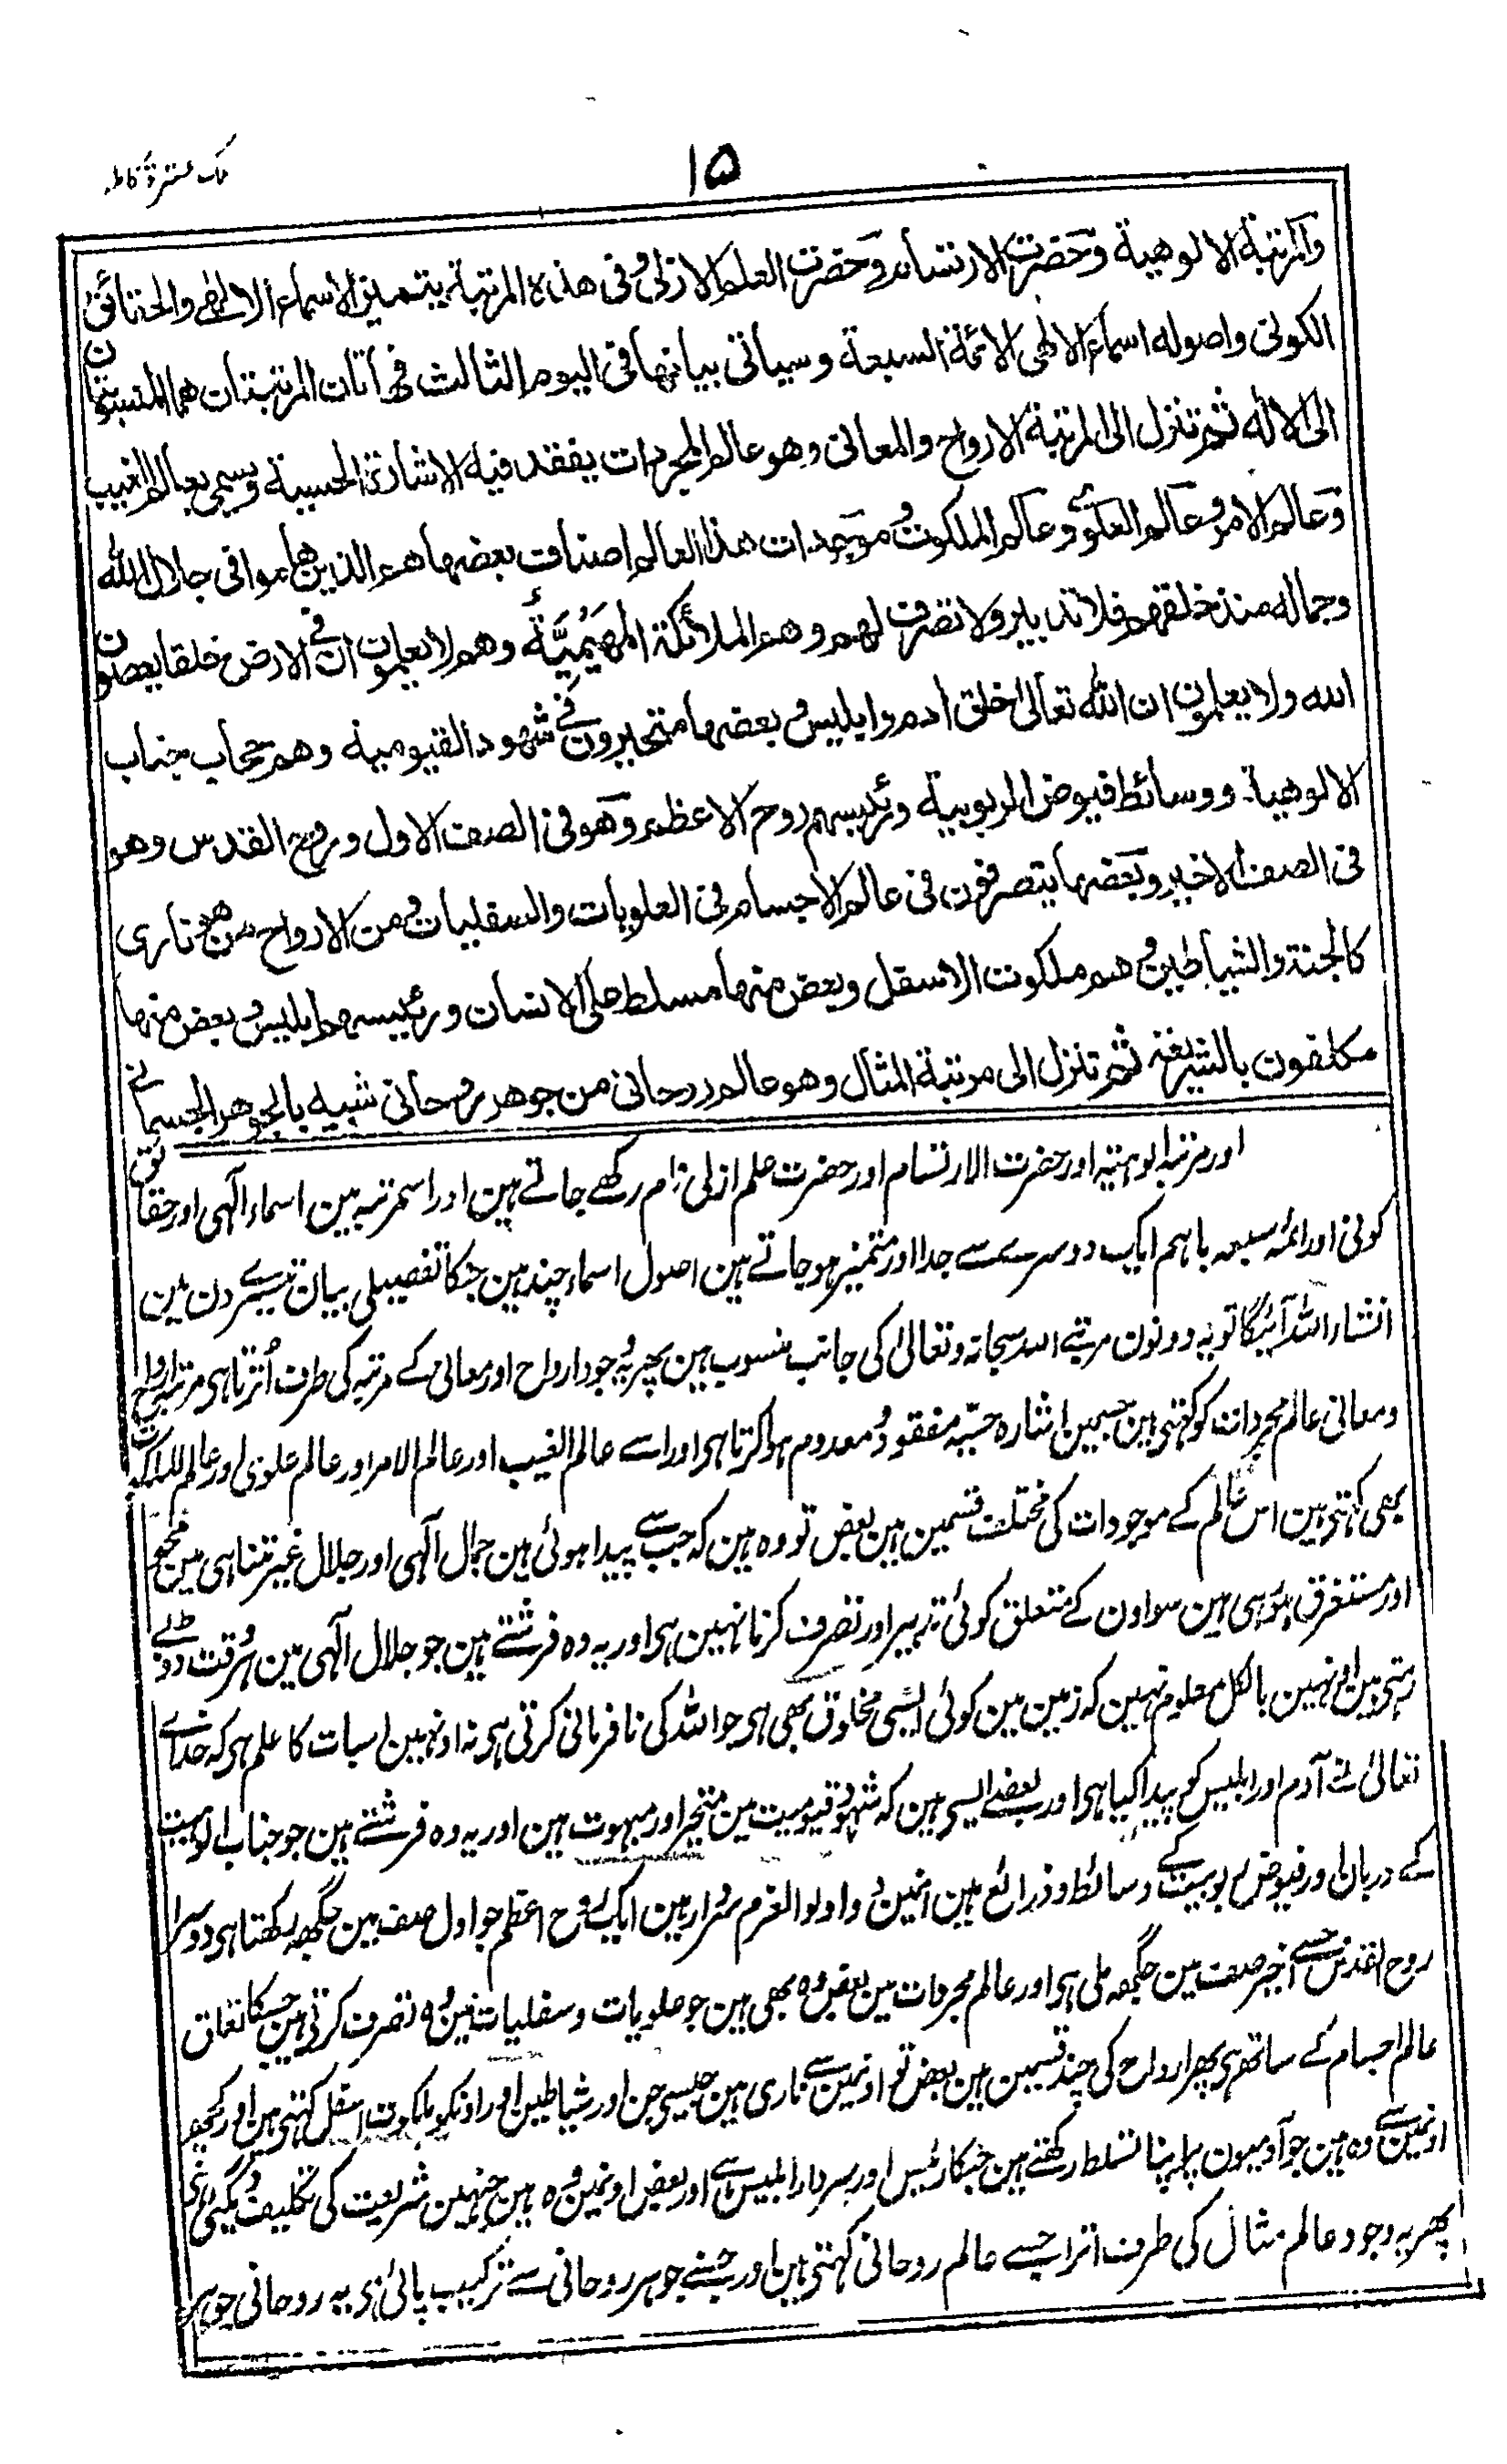 تلك عشرة كاملة
۱۵
والمرتبة الالوهية وحضرت الارتسام وحضرت العلم الازلى وفى هذه المرتبة يتميز الاسماء الالهى والحقائق
الكونى واصوله اسماء الالهى الائمة السبعة وسياتى بيانها فى اليوم الثالث فهاتان المرتبتان هما المنسوبتان
الى الاله ثم تنزل الى المرتبة الارواح والمعانى وهو عالم المجردات يفقد فيه الاشارة الحسية ويسمى بعالم الغيب
وعالم الامر وعالم العلوى وعالم الملكوت وموجودات هذا العالم اصناف بعضها هم الذين هاموا فى جلال الله
وجماله منذ خلقهم فلا تدبير ولا تصرف لهم وهم الملائكة المهيمية وهم لا يعلمون ان فى الارض خلقا يعصون
الله ولا يعلمون ان الله تعالى خلق ادم وابليس وبعضها متحيرون فى شهود القيومية وهم حجاب جناب
الالوهية ووسائط فيوض الربوبية ورئيسهم روح الاعظم وهو فى الصف الاول وروح القدس وهو
فى الصف الاخير وبعضها يتصرفون فى عالم الاجسام فى العلويات والسفليات ومن الارواح من هو نارى
كالجنة والشياطين وهم ملكوت الاسفل وبعض منها مسلط على الانسان ورئيسهم ابليس وبعض منها
مكلفون بالشريعة ثم تنزل الى مرتبة المثال وهو عالم روحانى من جوهر روحانى شبيه بالجوهر الجسمانى
اور مرتبہ الوہیتہ اور حضرت الارتسام اور حضرت علم ازلی نام رکھے جاتے ہین اور اسمرتبہ مین اسماء آلہی اور حقائق
کونی اور ائمہ سبعہ باہم ایک دوسرے سے جدا اور متمیز ہوجاتے ہین اصول اسماء چند ہین جنکا تفصیلی بیان تیسرے دن مین
انشاء اللہ آئیگا تو یہ دونون مرتبے اللہ سبحانہ وتعالیٰ کی جانب منسوب ہین پھر یہ وجود ارواح اور معانی کے مرتبہ کی طرف اُترتا ہی مرتبہ ارواح
ومعانی عالم مجردات کو کہتی ہین جسمین اشارہ حسیّہ مفقود و معدوم ہوا کرتا ہی اور اسے عالم الغیب اور عالم الامر اور عالم علوی اور عالم الملکوت
بھی کہتی ہین اس عالم کے موجودات کی مختلف قسمین ہین بعض تو وہ ہین کہ جب سے پیدا ہوئی ہین جمال آلہی اور جلال غیر متناہی مین محو
اور مستغرق ہورہی ہین سو اون کے متعلق کوئی تدبیر اور تصرف کرنا نہین ہی اور یہ وہ فرشتے ہین جو جلال آلہی مین ہر وقت ڈوبے
رہتی ہین اور نہین بالکل معلوم نہین کہ زمین مین کوئی ایسی مخلوق بھی ہی جو اللہ کی نافرمانی کرتی ہی نہ اونہین اسبات کا علم ہی کہ خداے
تعالیٰ نے آدم اور ابلیس کو پیدا کیا ہی اور بعضے ایسی ہین کہ شہود قیومیت مین متحیر اور مبہوت ہین اور یہ وہ فرشتے ہین جو جناب الوہیت
کے دربان اور فیوض ربوبیت کے وسائط و ذرائع ہین انمین دو اولو العزم سردار ہین ایک روح اعظم جو اول صف مین جگھہ رکھتا ہی دوسرا
روح القدس جسے آخیر صف مین جگھہ ملی ہی اور عالم مجردات مین بعض وہ بھی ہین جو علویات و سفلیات مین وہ تصرف کرتی ہین جسکا تعلق
عالم اجسام کے ساتھ ہی پھر ارواح کی چند قسمین ہین بعض تو اونمین سے ناری ہین جیسی جن اور شیاطین اور اونکو ملکوت اسفل کہتی ہین اور کچھ
اونمین سے وہ ہین جو آدمیون پر اپنا تسلط رکھتے ہین جنکا رئیس اور سردار ابلیس ہے اور بعض اونمین وہ ہین جنہین شریعت کی تکلیف دیگئی ہی
پھر یہ وجود عالم مثال کی طرف اترا جسے عالم روحانی کہتی ہین اور جسنے جوہر روحانی سے ترکیب پائی ہی یہ روحانی جوہر